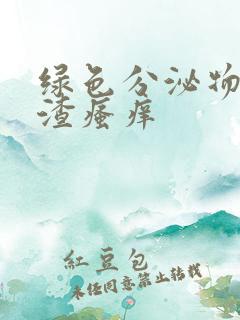 绿色分泌物
渣瘙痒
紅豆包
未经同意禁止转载